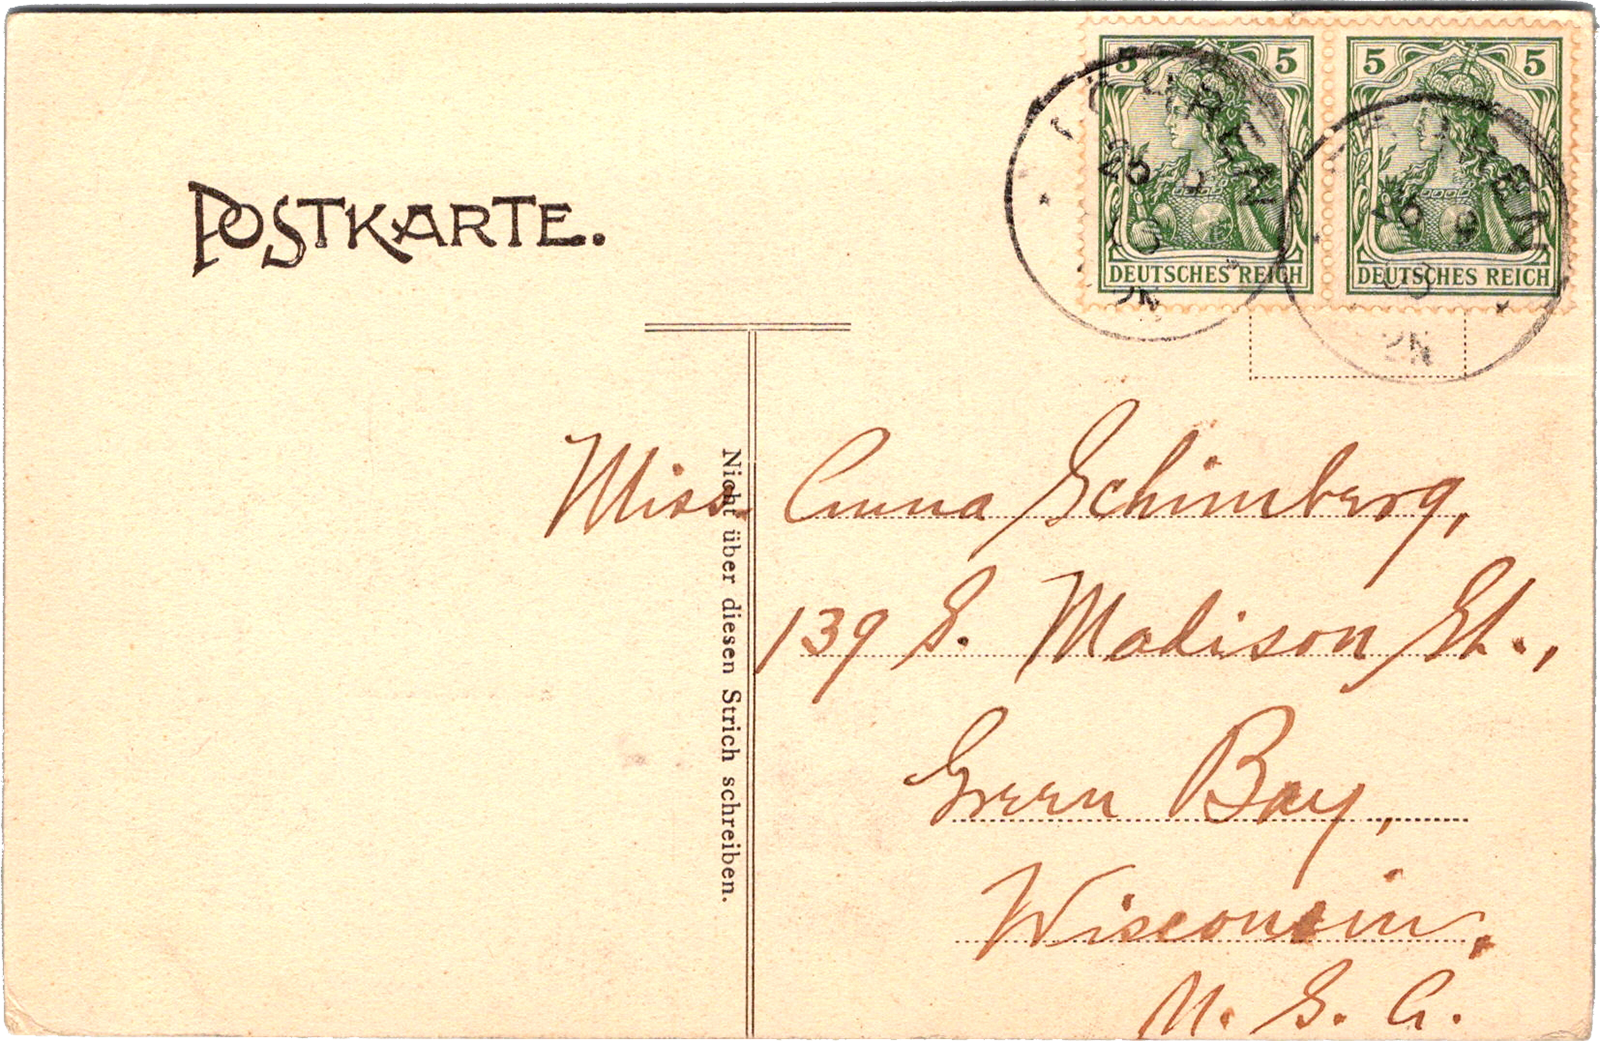 POSTKARTE.
5 5
DEUTSCHES REICH
5 5
DEUTSCHES REICH
Nicht über diesen Strich schreiben.
Miss. Anna Schimberg,
139 S. Madison St.,
Green Bay,
Wisconsin,
U. S. A.